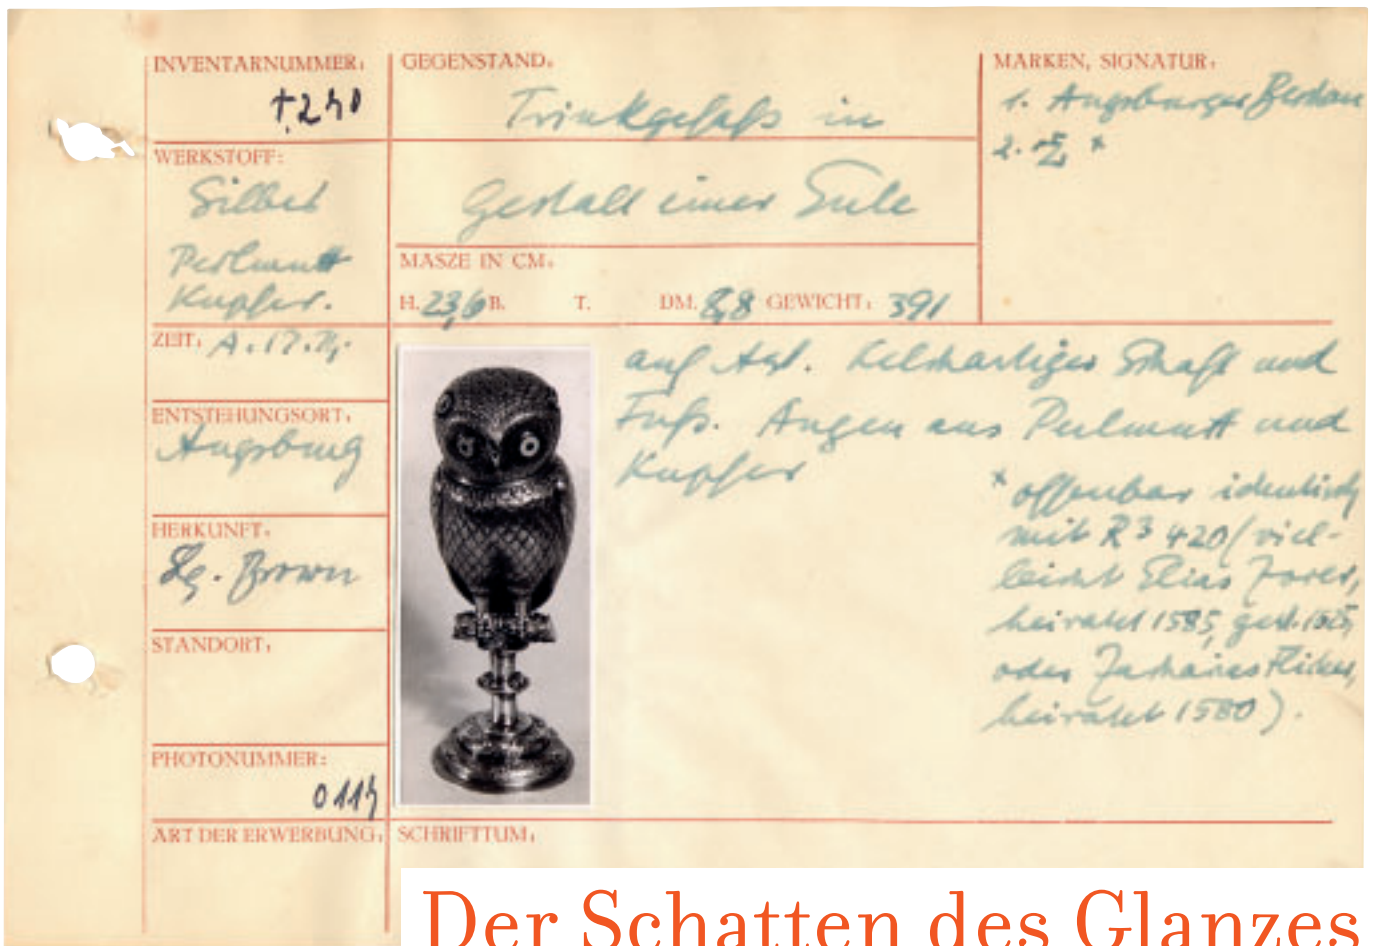 INVENTARNUMMER:
GEGENSTAND:
Trinkgefäß in
Gestalt einer Eule
MARKEN, SIGNATUR:
1. Augsburger
2.
WERKSTOFF:
Silber
Perlmutt
Kupfer.
MASZE IN CM:
H. 23,6 B. T. DM. 8,8 GEWICHT: 391
ZEIT: A. 17. Jh.
ENTSTEHUNGSORT:
Augsburg
HERKUNFT:
Slg. Brown
STANDORT:
PHOTONUMMER:
ART DER ERWERBUNG:
auf Ast. Kelchartiger Schaft und
Fuß. Augen aus Perlmutt und
Kupfer
* offenbar identisch
mit R³ 420 (viel-
leicht Elias
heiratet 1585, gest.
oder Zacharias
heiratet 1580).
SCHRIFTTUM:
Der Schatten des Glanzes